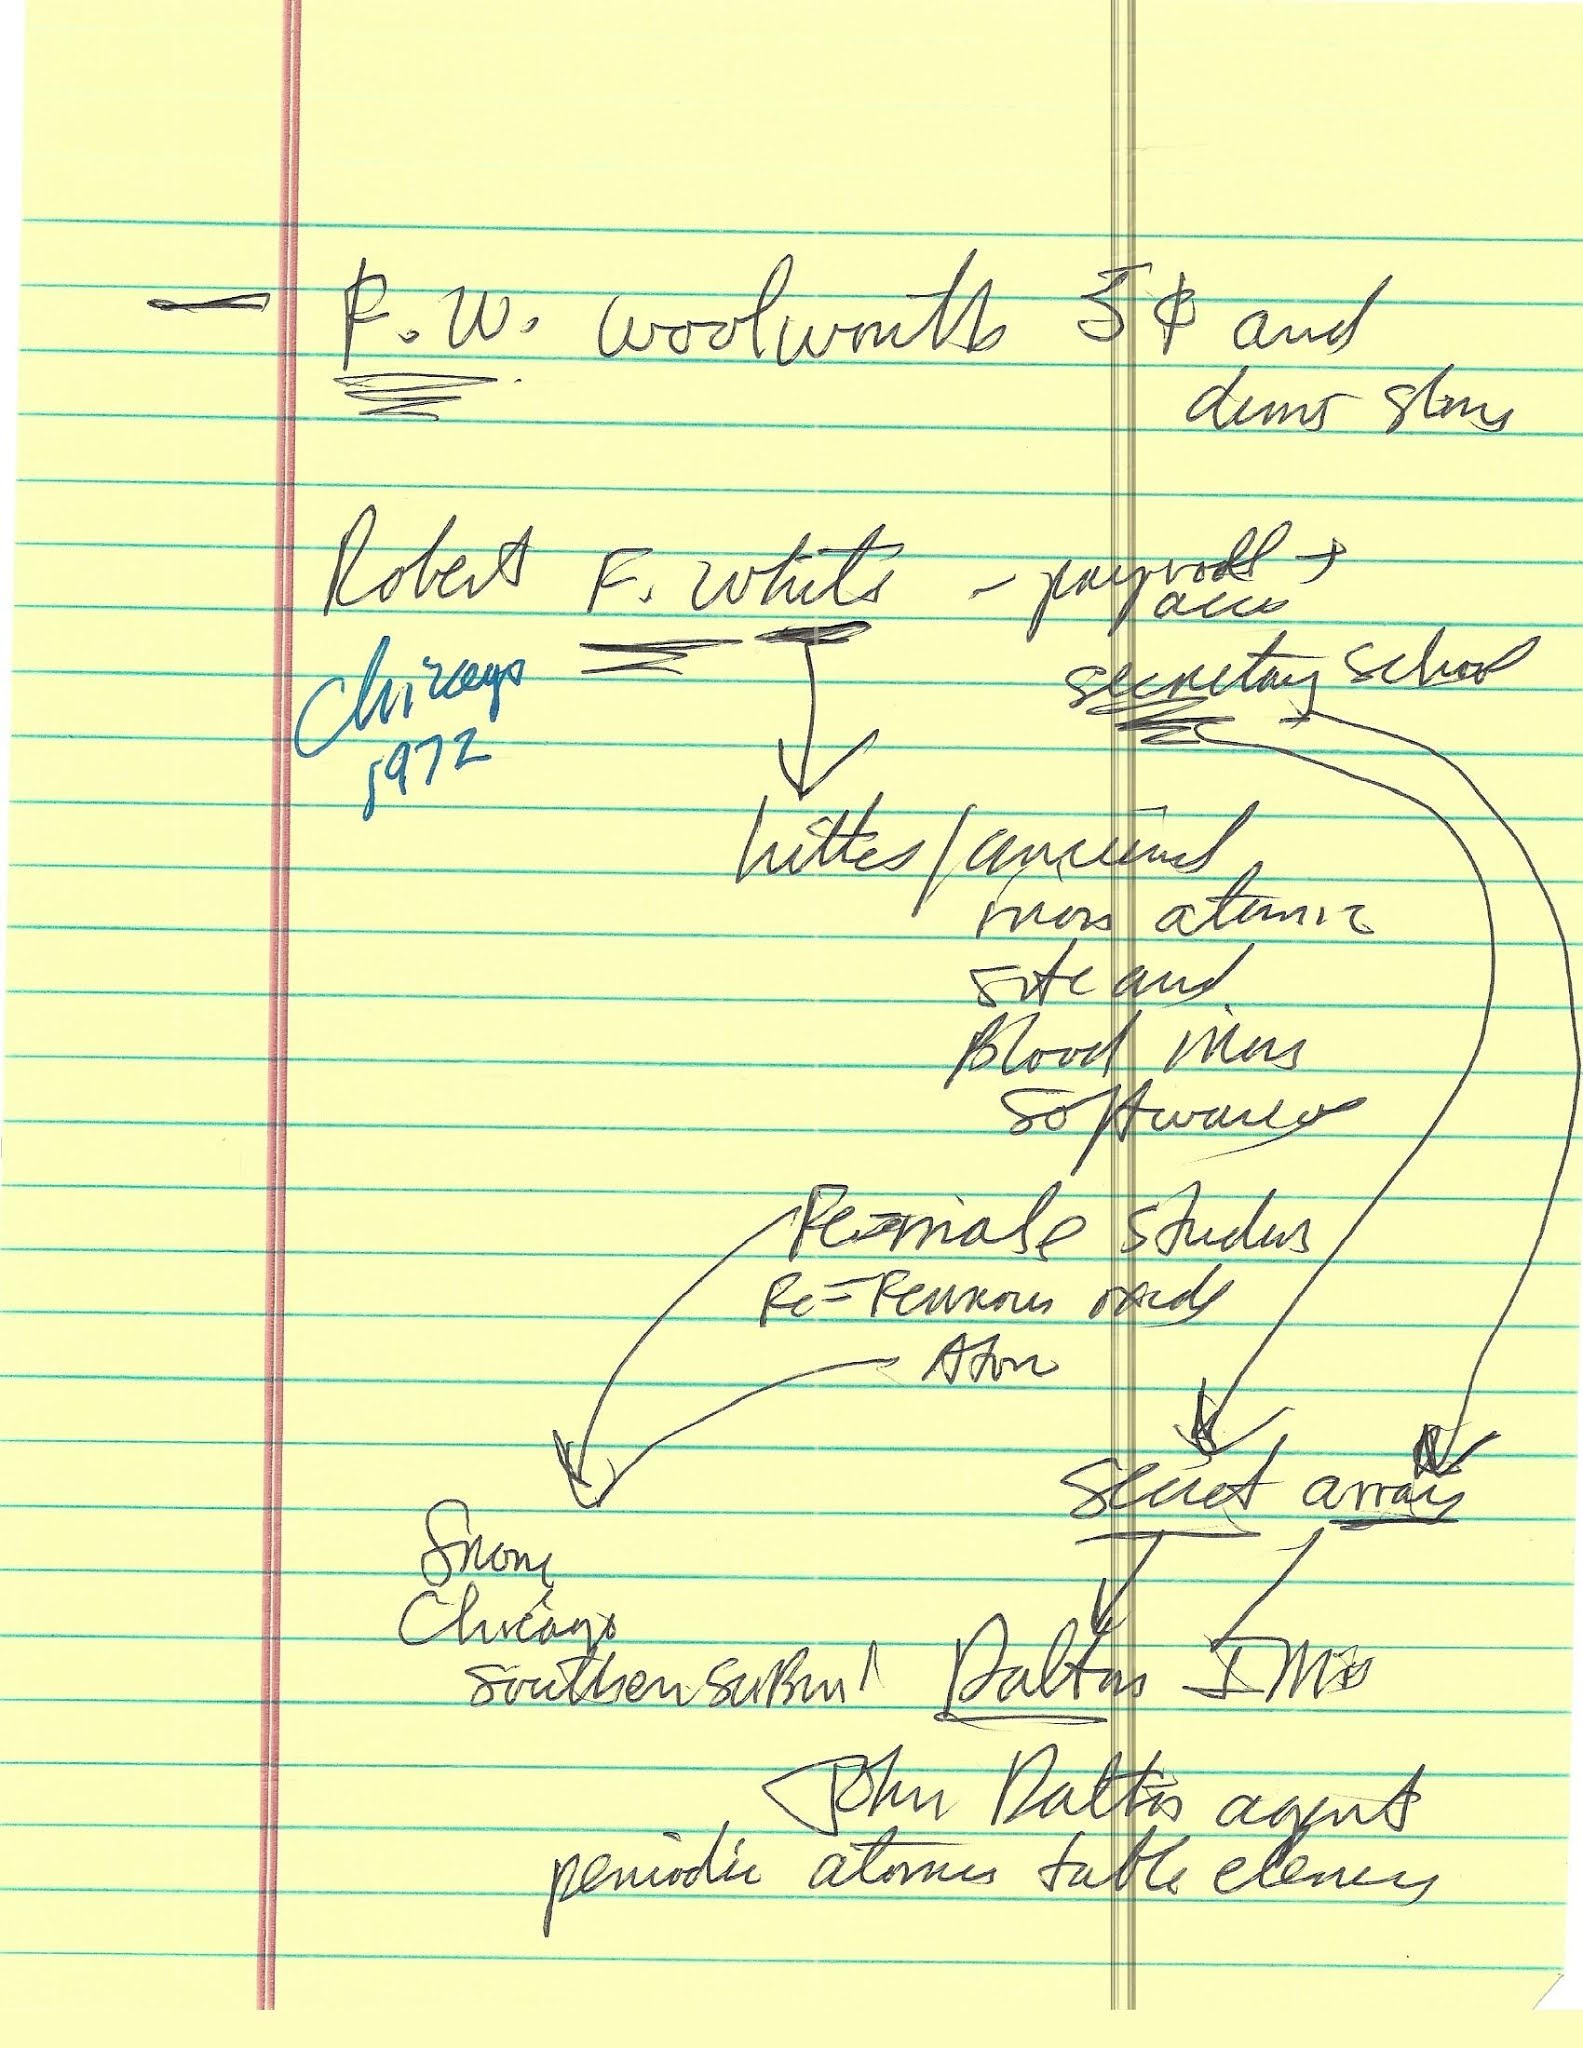 F. W. Woolworth 5 ¢ and
dime store
Robert F. White - payroll →
secretary school
Chicago
1972
/ ancient
iron atomic
site and
Blood irons
software
Fe=male studies
Fe = Ferrous oxide
Secret arrays
Chicago
southern suburb Dalton
John Dalton agent
periodic atomic table elements